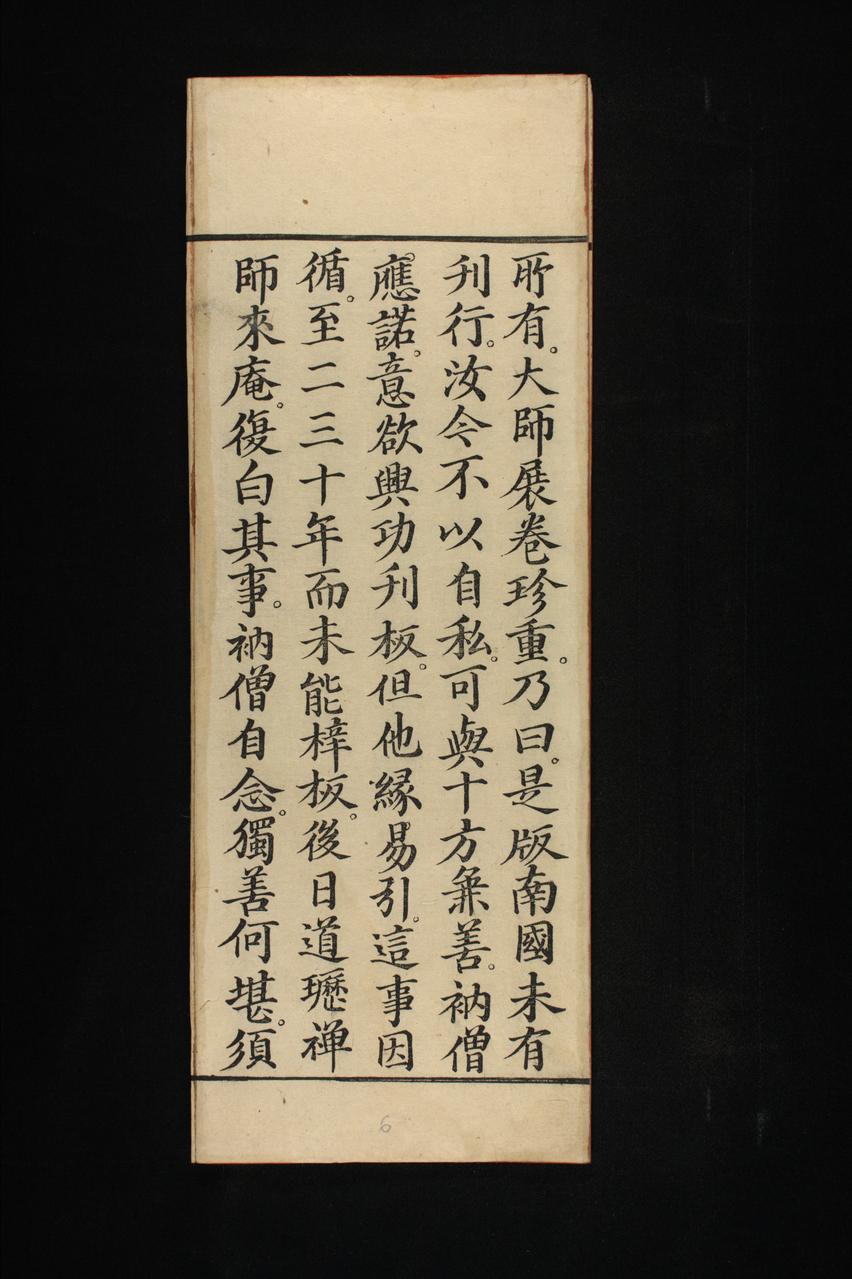 所有。大師展卷珍重。乃曰。是版南國未有
刊行。汝今不以自私。可與十方兼善。衲僧
應諾。意欲興功刊板。但他緣易引。這事因
循。至二三十年而未能梓板。後日道瓑禅
師來庵。復白其事。衲僧自念。獨善何堪。須
6